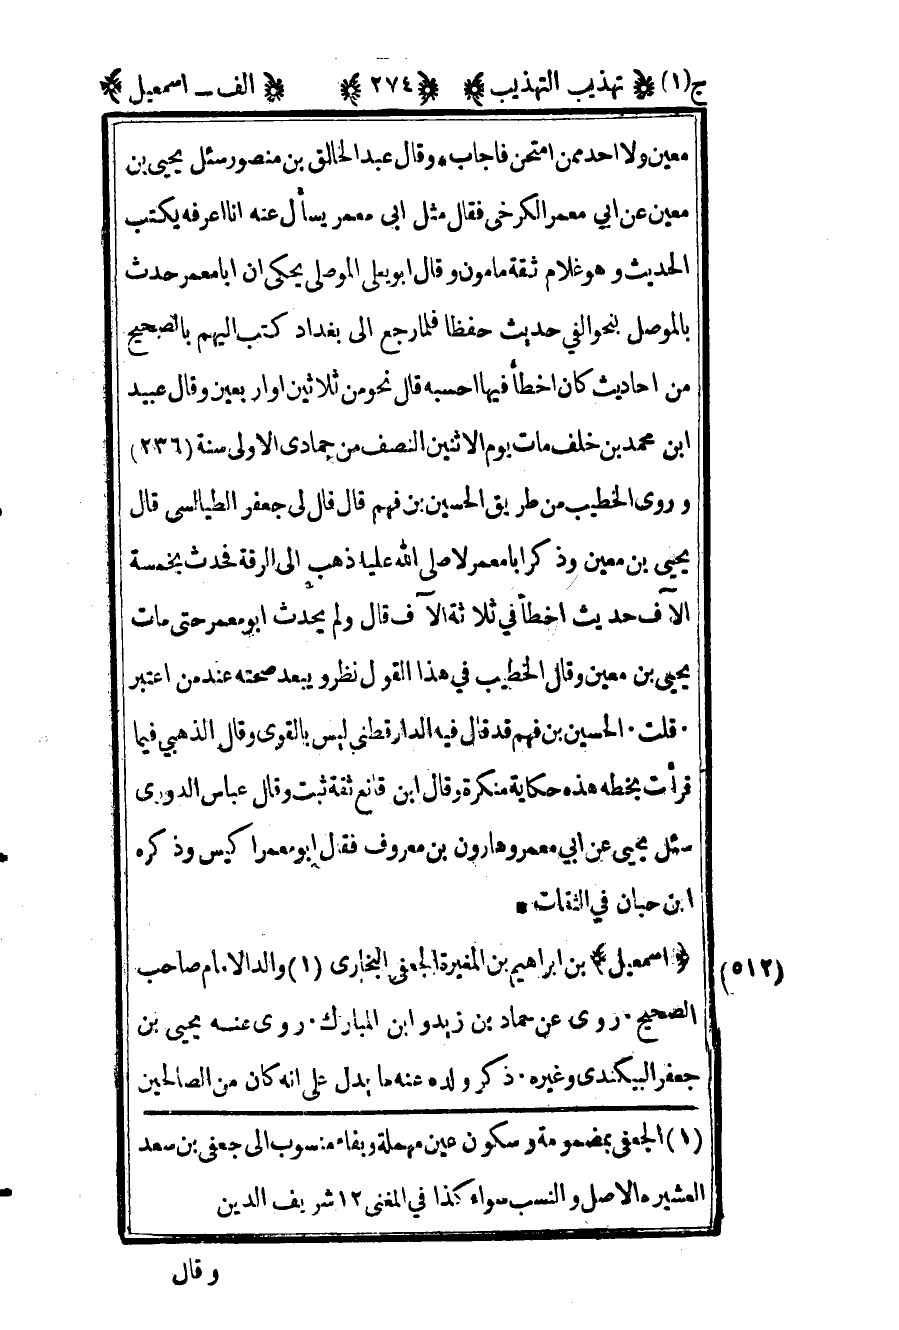 ج(١) ﴿ تهذيب التهذيب ﴾ ﴿ ٢٧٤ ﴾ ﴿ الف ــ اسمعيل ﴾
معين ولا احد ممن امتحن فاجاب * وقال عبد الخالق بن منصور سئل يحيى بن
معين عن ابي معمر الكرخى فقال مثل ابى معمر يسأل عنه انا اعرفه يكتب
الحديث و هو غلام ثقة مامون و قال ابو يعلى الموصلى يحكى ان ابا معمر حدث
بالموصل بنحو الفي حديث حفظا فلما رجع الى بغداد كتب اليهم بالصحيح
من احاديث كان اخطأ فيها احسبه قال نحو من ثلاثين او اربعين وقال عبيد
ابن محمد بن خلف مات يوم الاثنين النصف من جمادى الاولى سنة (٢٣٦)
و روى الخطيب من طريق الحسين بن فهم قال قال لى جعفر الطيالسى قال
يحيى بن معين وذكر ابا معمر لا صلى الله عليه ذهب الى الرقة فحدث بخمسة
الآف حديث اخطأ في ثلاثة الآف قال ولم يحدث ابو معمر حتى مات
يحيى بن معين وقال الخطيب في هذا القول نظر و يبعد صحته عند من اعتبر
· قلت · الحسين بن فهم قد قال فيه الدار قطني ليس بالقوى وقال الذهبي فيما
قرأت بخطه هذه حكاية منكرة وقال ابن قانع ثقة ثبت وقال عباس الدورى
سئل يحيى عن ابي معمر وهارون بن معروف فقال ابو معمر اكيس وذكره
ابن حبان في الثقات *
(٥١٢) ﴿ اسمعيل ﴾ بن ابراهيم بن المغيرة الجعفي البخارى (١) والد الامام صاحب
الصحيح · روى عن حماد بن زيد و ابن المبارك · روى عنه يحيى بن
جعفر البيكندى وغيره · ذكر ولده عنه ما يدل على انه كان من الصالحين
(١) الجعفى بمضمومة و سكون عين مهملة و بفاء منسوب الى جعفى بن سعد
العشيره الاصل و النسب سواء كذا في المغنى ١٢ شريف الدين
و قال